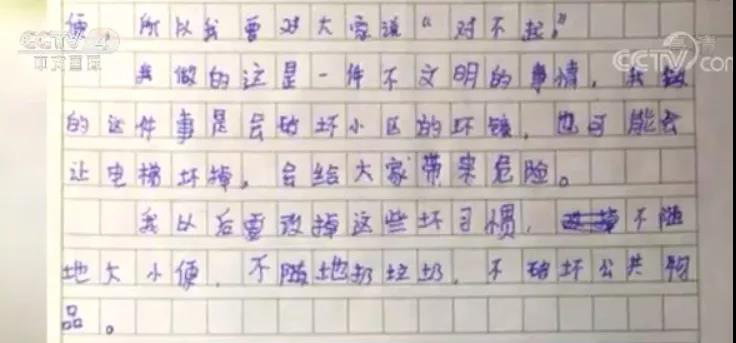 CCTV 4
中文国际
高清
CCTV.com
便 所以我要对大家说“对不起”
我做的这是一件不文明的事情,我做
的这件事是会破坏小区的环镜,也可能会
让电梯坏掉,会给大家带来危险。
我以后要改掉这些坏习惯,不随
地大小便,不随地扔垃圾,不破坏公共物
品。